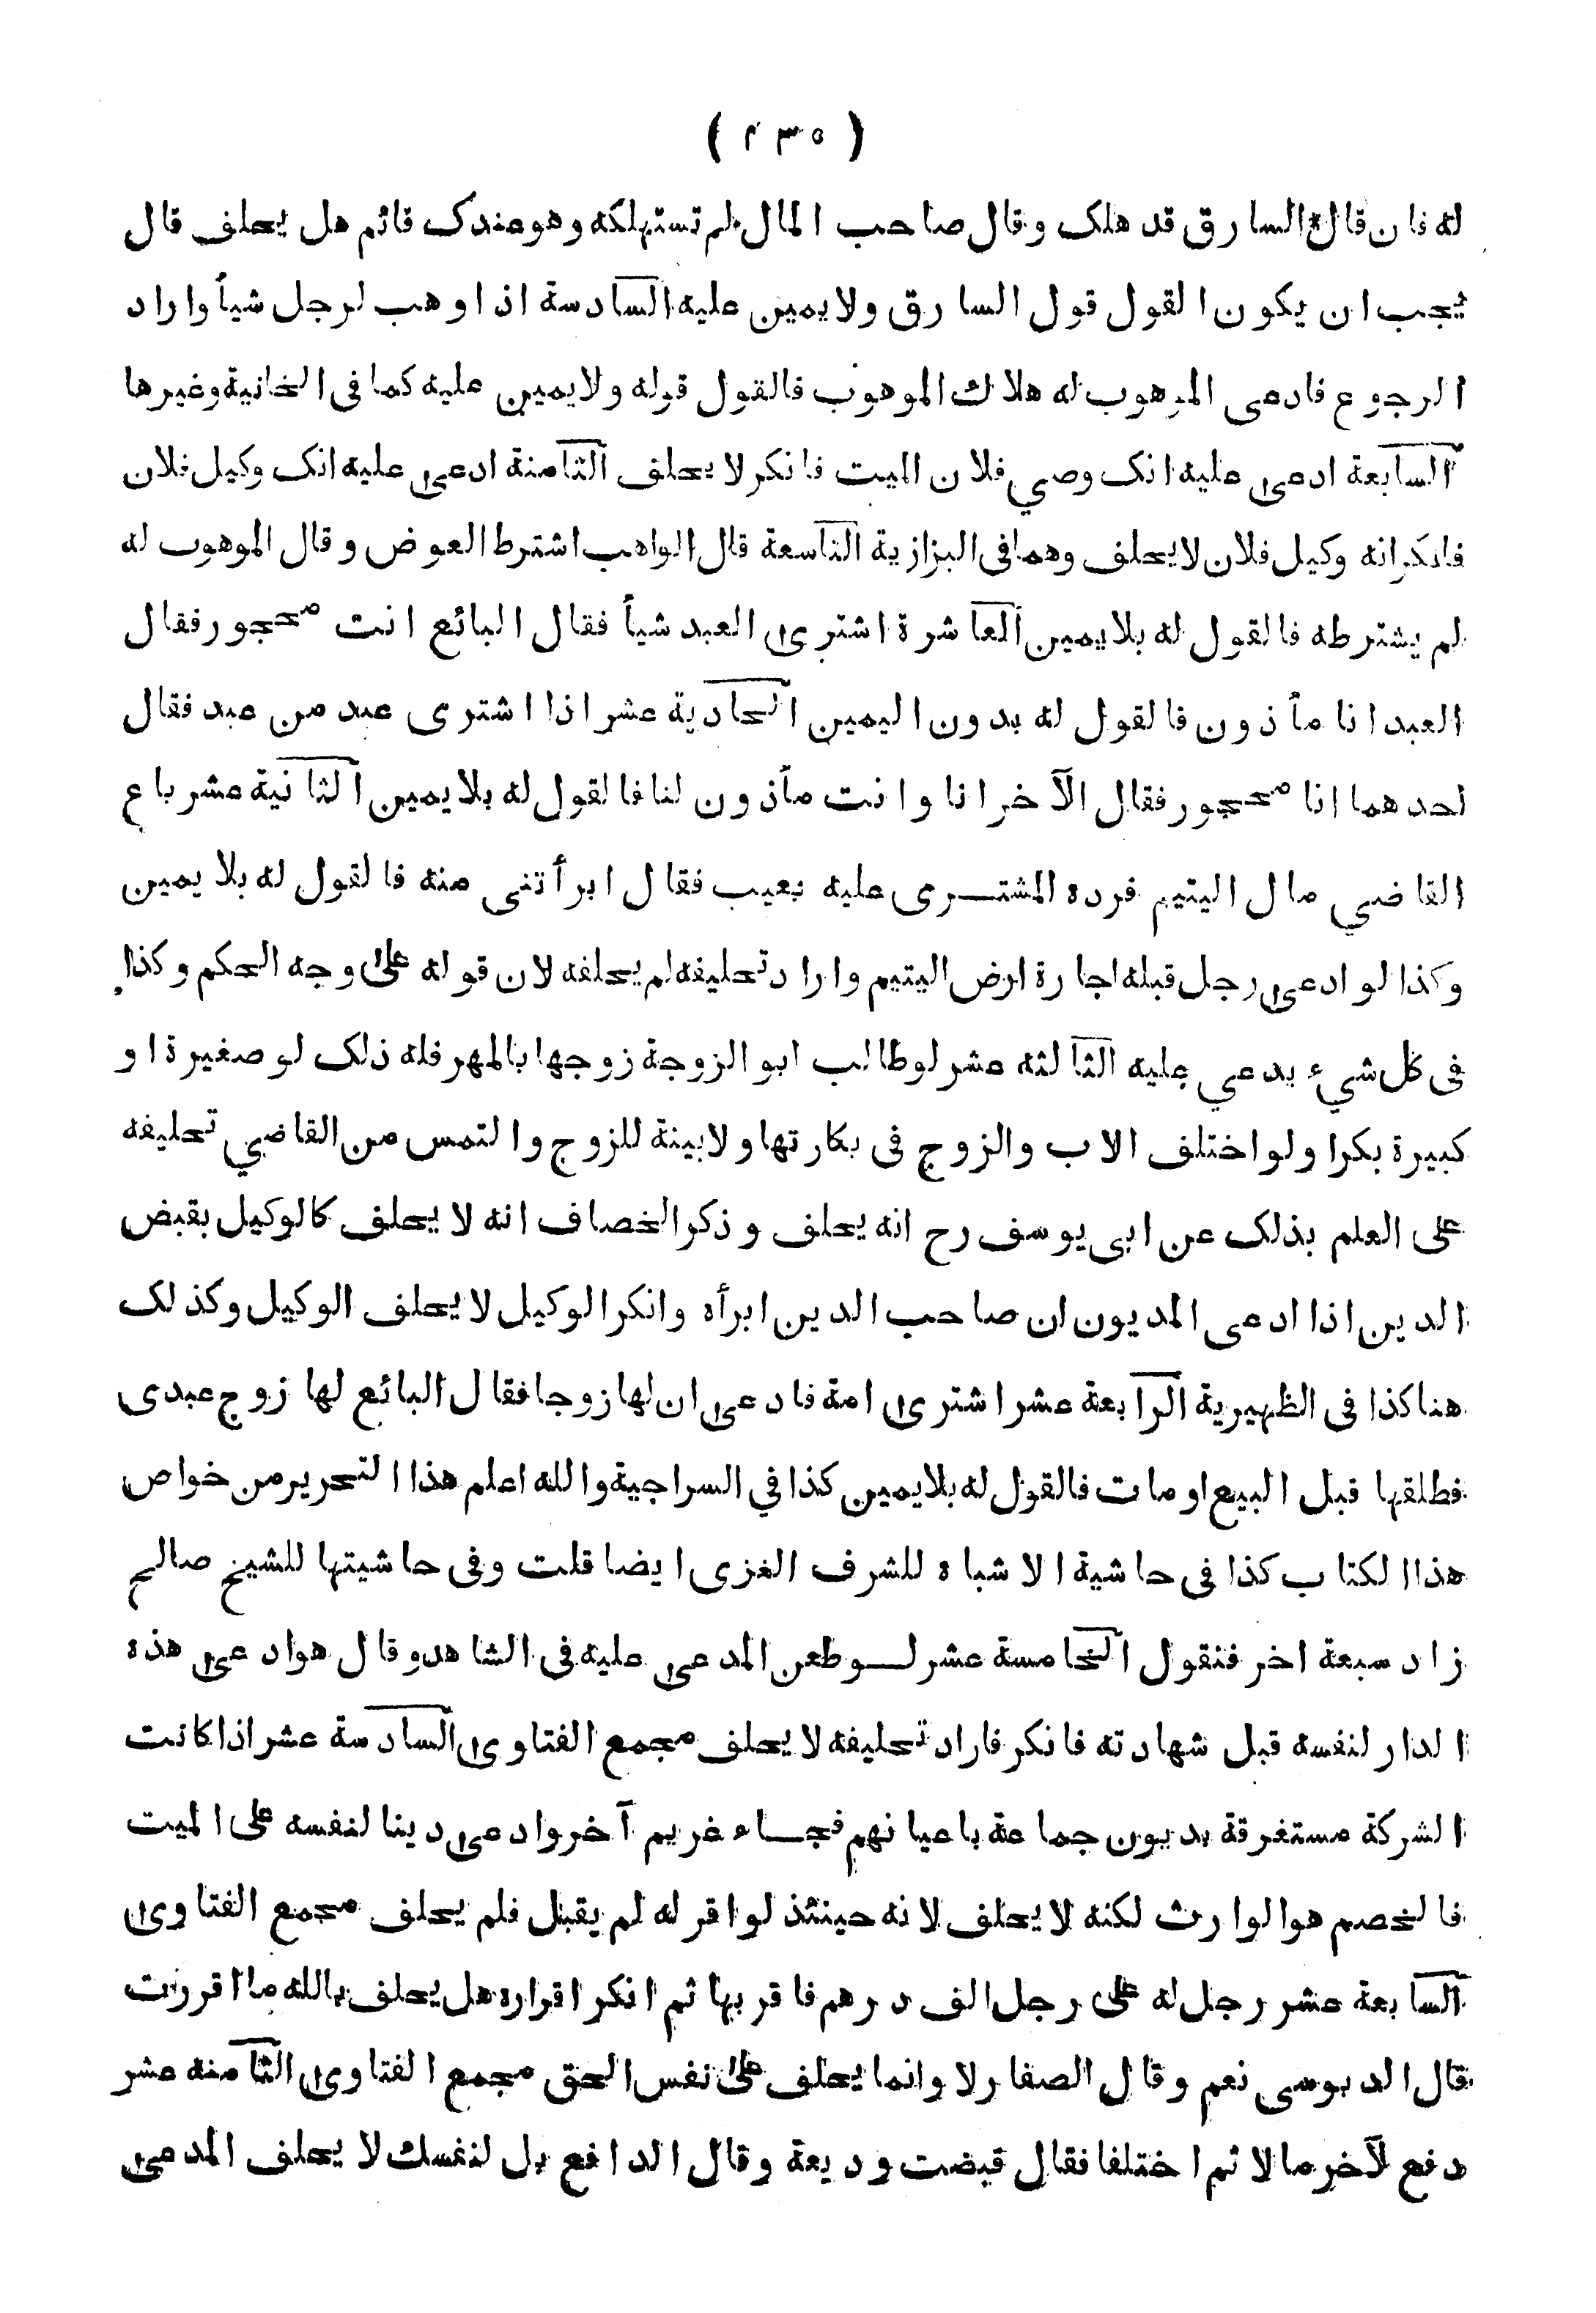 ( ٤٣٥ )
له فان قال السارق قد هلك وقال صاحب المال لم تستهلكه وهو عندك قائم هل يحلف قال
يجب ان يكون القول قول السارق ولا يمين عليه السادسة اذا وهب لرجل شيأ واراد
الرجوع فادعى الموهوب له هلاك الموهوب فالقول قوله ولا يمين عليه كما فى الخانية وغيرها
السابعة ادعى عليه انك وصي فلان الميت فانكر لا يحلف الثامنة ادعى عليه انك وكيل فلان
فانكر انه وكيل فلان لا يحلف وهما فى البزازية التاسعة قال الواهب اشترط العوض وقال الموهوب له
لم يشترطه فالقول له بلا يمين العاشرة اشترى العبد شيأ فقال البائع انت محجور فقال
العبد انا مأذون فالقول له بدون اليمين الحادية عشر اذا اشترى عبد من عبد فقال
احدهما انا محجور فقال الآخر انا وانت مأذون لنا فالقول له بلا يمين الثانية عشر باع
القاضي مال اليتيم فرده المشترى عليه بعيب فقال ابرأتنى منه فالقول له بلا يمين
وكذا لو ادعى رجل قبله اجارة ارض اليتيم واراد تحليفه لم يحلفه لان قوله على وجه الحكم وكذا
فى كل شيء يدعي عليه الثالثه عشر لو طالب ابو الزوجة زوجها بالمهر فله ذلك لو صغيرة او
كبيرة بكرا ولو اختلف الاب والزوج فى بكارتها ولا بينة للزوج والتمس من القاضي تحليفه
على العلم بذلك عن ابى يوسف رح انه يحلف وذكر الخصاف انه لا يحلف كالوكيل بقبض
الدين اذا ادعى المديون ان صاحب الدين ابرأه وانكر الوكيل لا يحلف الوكيل وكذلك
هنا كذا فى الظهيرية الرابعة عشر اشترى امة فادعى ان لها زوجا فقال البائع لها زوج عبدى
فطلقها قبل البيع او مات فالقول له بلا يمين كذا في السراجية والله اعلم هذا التحرير من خواص
هذا الكتاب كذا فى حاشية الاشباه للشرف الغزى ايضا قلت وفى حاشيتها للشيخ صالح
زاد سبعة اخر فنقول الخامسة عشر لو طعن المدعى عليه فى الشاهد وقال هو ادعى هذه
الدار لنفسه قبل شهادته فانكر فاراد تحليفه لا يحلف مجمع الفتاوى السادسة عشر اذا كانت
الشركة مستغرقة بديون جماعة باعيانهم فجاء غريم آخر وادعى دينا لنفسه على الميت
فالخصم هو الوارث لكنه لا يحلف لانه حينئذ لو اقر له لم يقبل فلم يحلف مجمع الفتاوى
السابعة عشر رجل له على رجل الف درهم فاقر بها ثم انكر اقراره هل يحلف بالله ما اقررت
قال الدبوسى نعم وقال الصفار لا وانما يحلف على نفس الحق مجمع الفتاوى الثامنه عشر
دفع لآخر مالا ثم اختلفا فقال قبضت وديعة وقال الدافع بل لنفسك لا يحلف المدعى